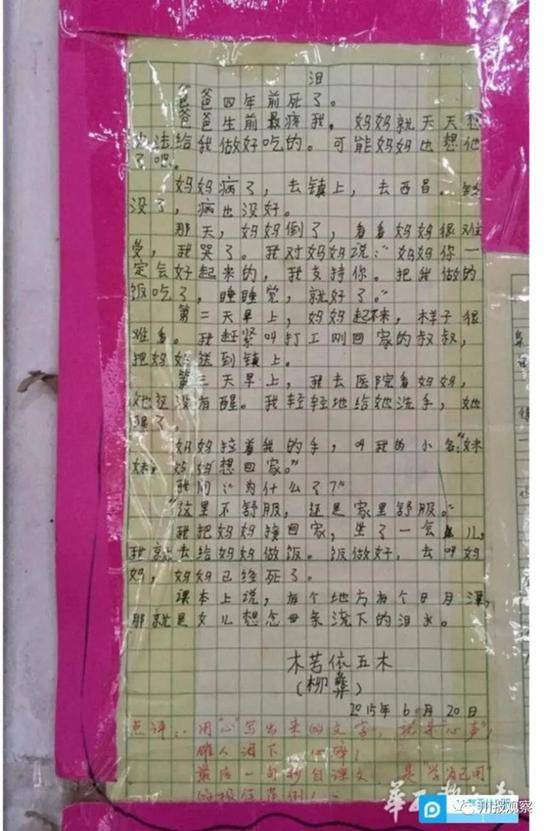 泪
爸爸四年前死了。
爸爸生前最疼我，妈妈就天天想
办法给我做好吃的。可能妈妈也想他
了吧。
妈妈病了，去镇上，去西昌。钱
没了，病也没好。
那天，妈妈倒了，看看妈妈很难
受，我哭了。我对妈妈说：“妈妈你一
定会好起来的，我支持你。把我做的
饭吃了，睡睡觉，就好了。”
第二天早上，妈妈起不来，样子很
难看。我赶紧叫打工刚回家的叔叔，
把妈妈送到镇上。
第三天早上，我去医院看妈妈，
她还没有醒。我轻轻地给她洗手，她
醒了。
妈妈拉着我的手，叫我的小名：“妹
妹，妈妈想回家。”
我问：“为什么了？”
“这里不舒服，还是家里舒服。”
我把妈妈接回家，坐了一会儿，
我就去给妈妈做饭。饭做好，去叫妈
妈，妈妈已经死了。
课本上说，有个地方有个日月潭，
那就是女儿想念母亲流下的泪水。
木苦依五木
（柳彝）
2015年6月20日
点评：用“心”写出来的文字，就是“心声”，
催人泪下
最后一句抄自课文，是“学为己用”
的极佳范例！
华西都市报
川报观察